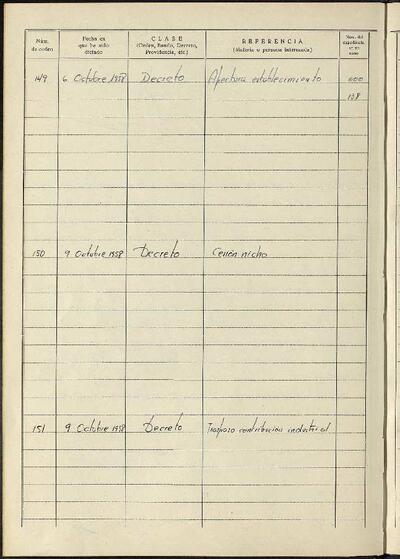 Núm. de orden
Fecha en que ha sido dictado
CLASE (Orden, Bando, Decreto, Providencia, etc.)
REFERENCIA (Materia o persona interesada)
Núm. del expediente
149 6 Octubre 1958 Decreto Apertura establecimiento 600
158
150 9 Octubre 1958 Decreto Cesión nicho
151 9 Octubre 1958 Decreto Traspaso contribución industrial